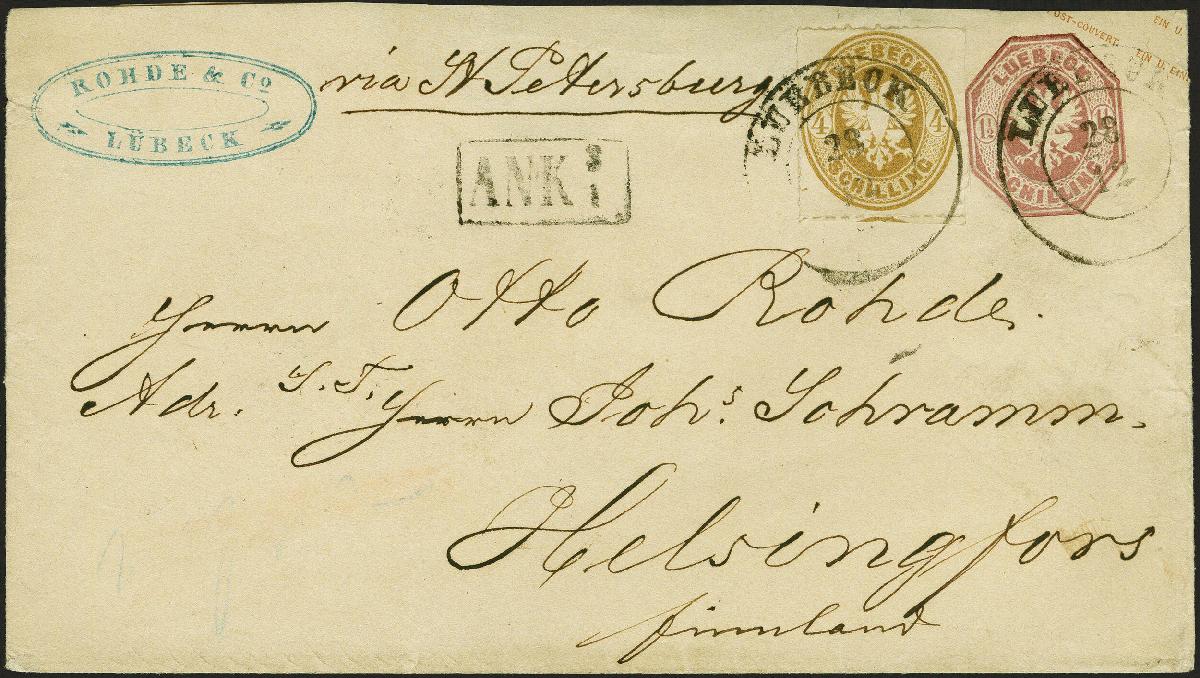 ROHDE & Co
LÜBECK
via St Petersburg
ANK
LUEBECK
4 4
SCHILLING
LUEBECK
28
LUEBECK
1½
SCHILLING
28
12
POST-COUVERT
EIN U.
EIN U. EIN
Herrn Otto Rohde.
Adr. S. T. Herrn Johs Schramm.
Helsingfors
finnland